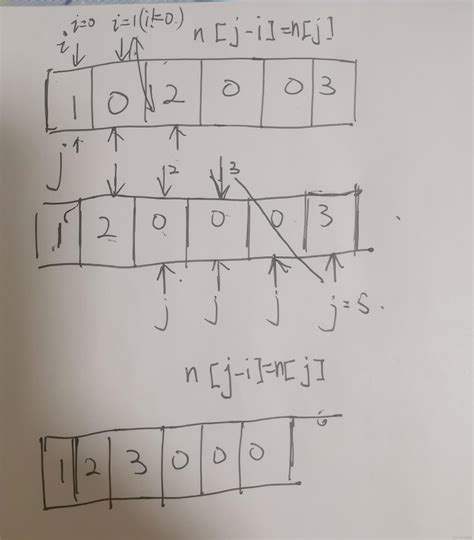 i=0 i=1(i!=0.) n[j-i]=n[j]
i
1 0 2 0 0 3
j
2 3
1 2 0 0 0 3
j j j j=5.
n[j-i]=n[j]
1 2 3 0 0 0